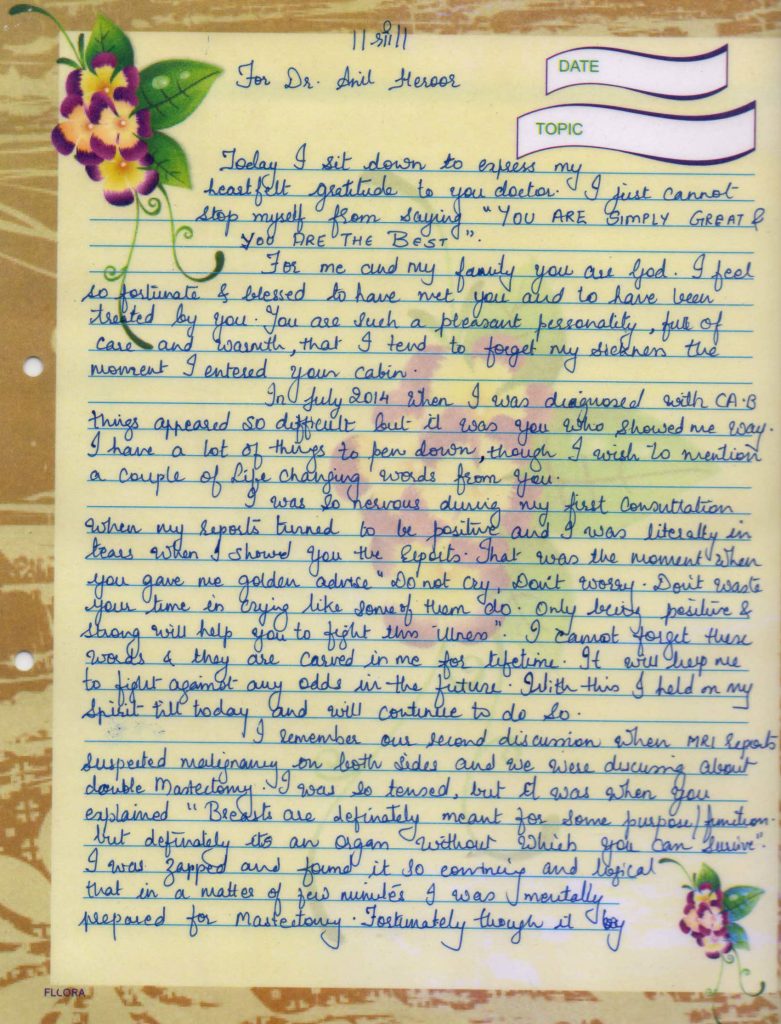 ||श्री||
For Dr. Anil Heroor
DATE
TOPIC
Today I sit down to express my
heartfelt gratitude to you doctor. I just cannot
stop myself from saying "YOU ARE SIMPLY GREAT &
YOU ARE THE BEST".
For me and my family you are God. I feel
so fortunate & blessed to have met you and to have been
treated by you. You are such a pleasant personality, full of
care and warmth, that I tend to forget my sickness the
moment I entered your cabin.
In July 2014 when I was diagnosed with CA.B
things appeared so difficult but it was you who showed me way.
I have a lot of things to pen down, though I wish to mention
a couple of life changing words from you.
I was so nervous during my first consultation
when my reports turned to be positive and I was literally in
tears when I showed you the reports. That was the moment when
you gave me golden advise "Do not cry, Don't worry. Don't waste
your time in crying like some of them do. Only being positive &
strong will help you to fight this illness". I cannot forget these
words & they are carved in me for lifetime. It will help me
to fight against any odds in the future. With this I held on my
spirit till today and will continue to do so.
I remember our second discussion when MRI reports
suspected malignancy on both sides and we were discussing about
double Mastectomy. I was so tensed, but it was when you
explained "Breasts are definately meant for some purpose/function.
but definately its an organ without which you can survive".
I was zapped and found it so convincing and logical
that in a matter of few minutes I was mentally
prepared for Mastectomy. Fortunately though it by
FLLORA